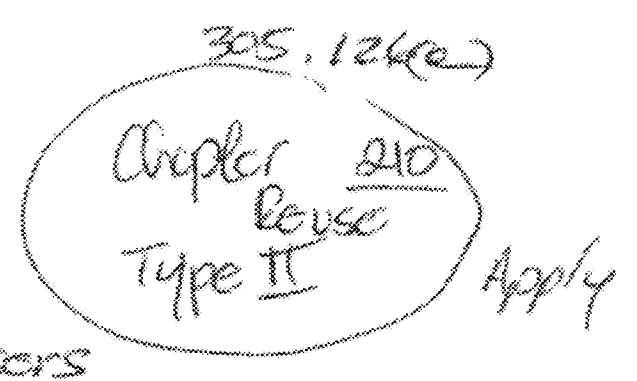 305.126(a)
Chapter 210
Reuse
Type II
Apply